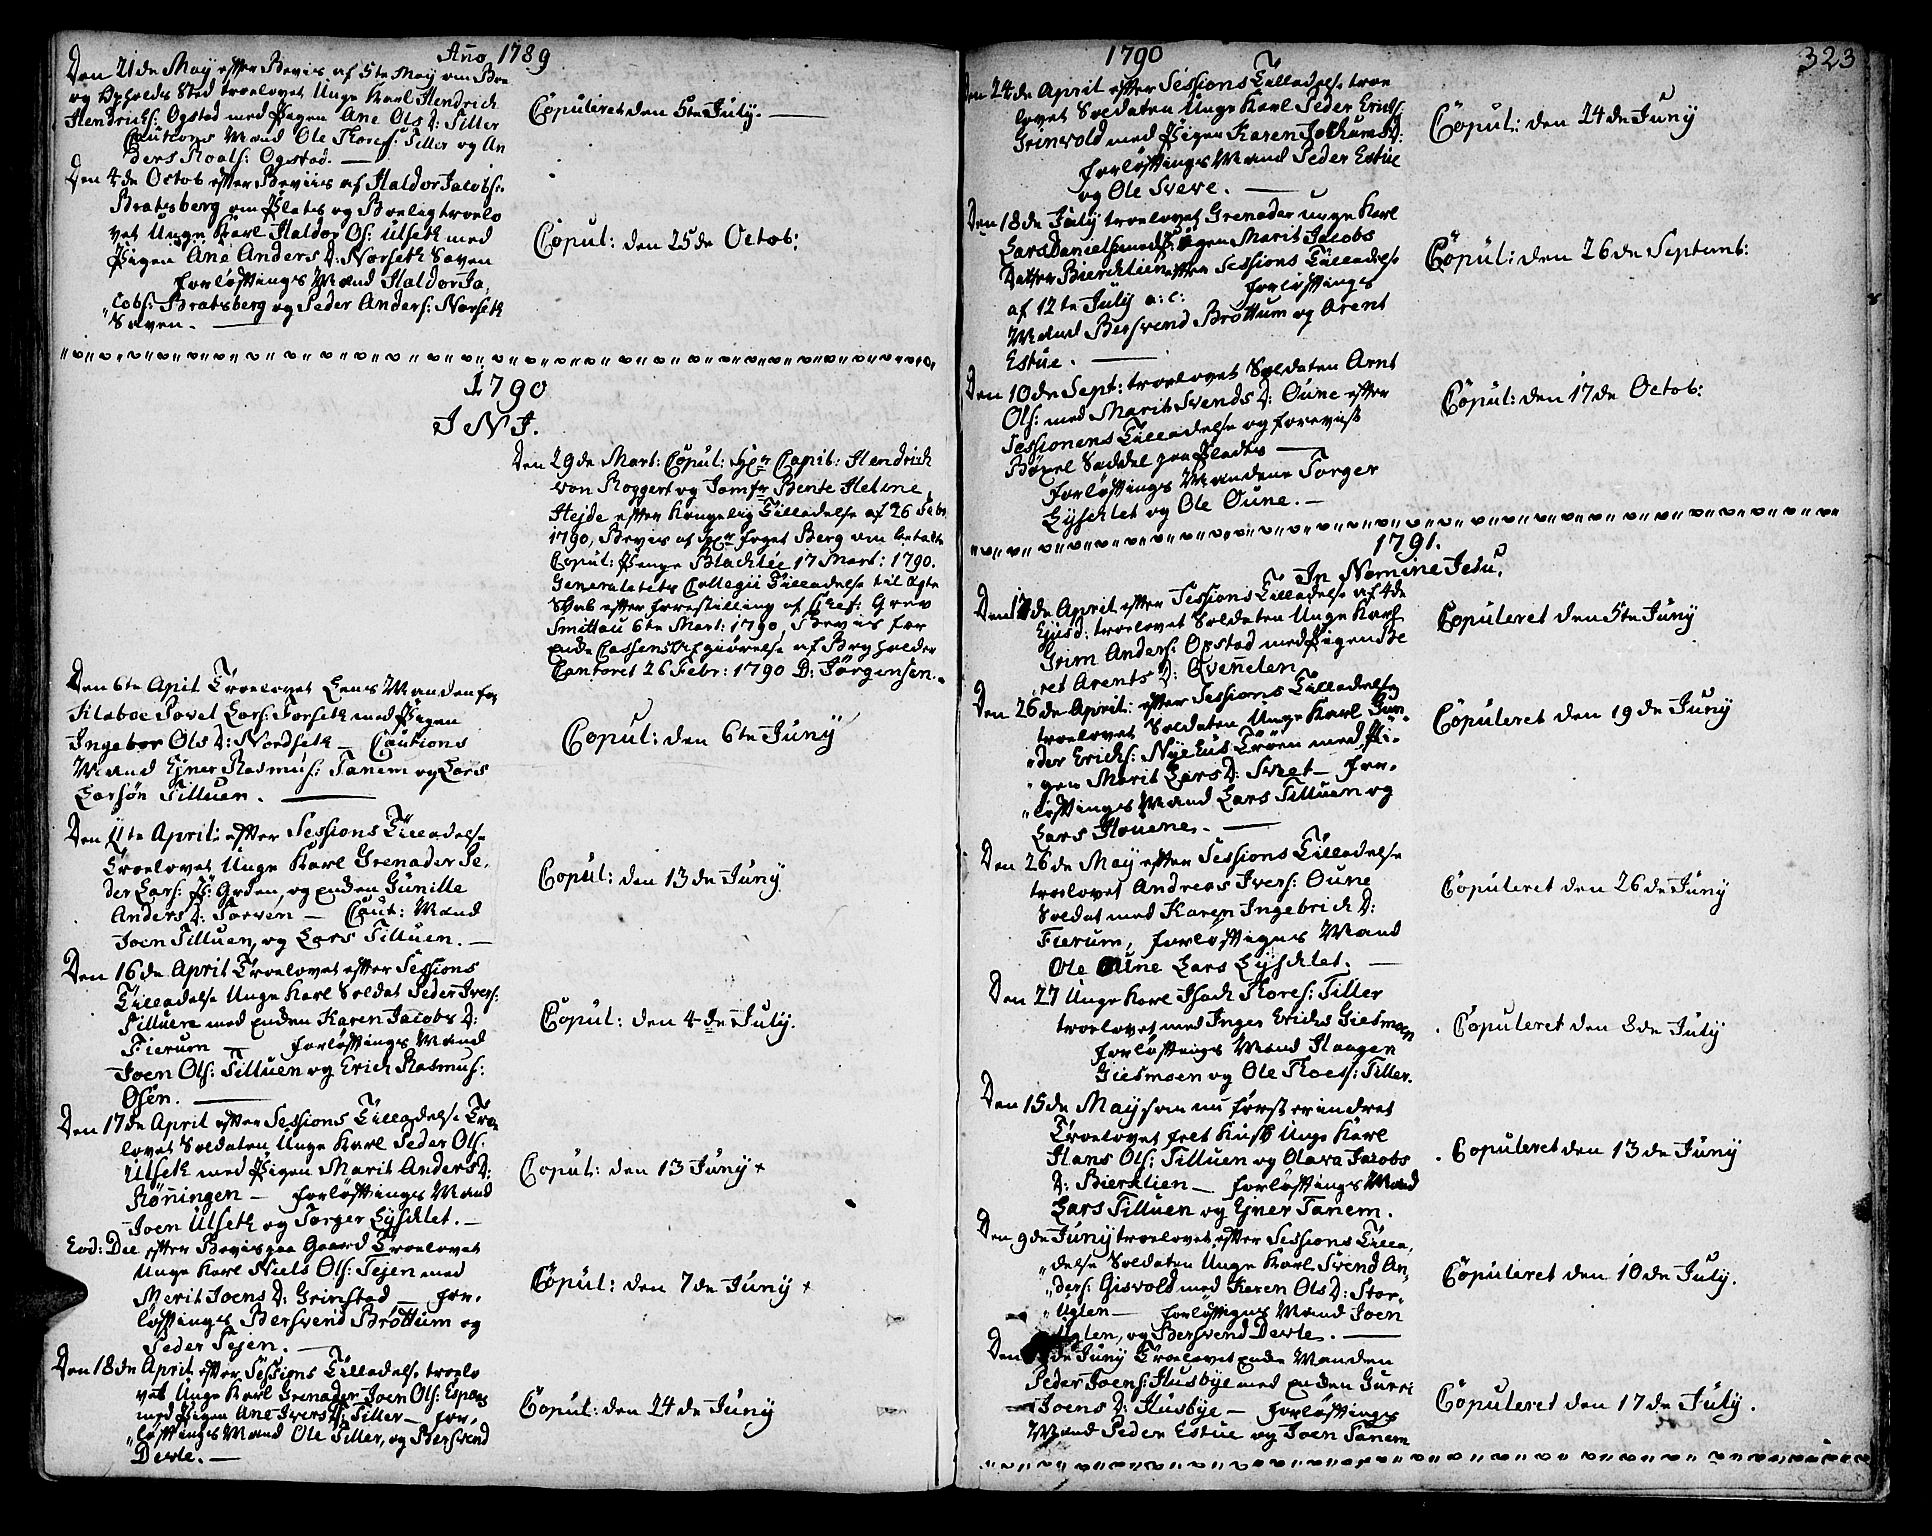 Año 1789
Den 21de May efter Beviis af 5te May om Boe
og Opholds Sted troelovet Unge Karl Hendrich
Hendrichs: Ogstad med Pigen Ane Ols D: Tiller
Cautions Mænd Ole Thores: Tiller og An
ders Roals: Ogstad. —
Copuleret den 5te July. —
Den 4de Octob efter Beviis af Haldor Jacobs:
Bratsberg om Plads og Boelig troelo
vet Unge Karl Haldor Ols: Ulseth med
Pigen Ane Anders D: Norseth Saven
forløftnings Mænd Haldor Ja„
cobs: Bratsberg og Peder Anders: Norseth
„Saven. —
Copul: den 25de Octob:
1790
I N J.
Den 29de Mart: Copul: Hr Capit: Hendrich
von Roggert og Jomfr Bente Helene
Hejde efter Kongelig Tilladelse af 26 Febr
1790, Beviis af Hr Foget Berg om betalte
Copul: Penge Bladklie 17 Mart: 1790.
Generalitets Collegii Tilladelse til Ægte
skab efter forestilling af Chef: Grev
Smittau 6te Mart: 1790, Beviis for
Enke Cassens Afgiørelse af Bogholder
Contoret 26 Febr: 1790 D: Jørgensen.
Den 6te Apil Troelovet Lens Manden for
Klæboe Povel Lars: Forseth med Pigen
Ingebor Ols D: Nordseth — Cautions
Mænd Ejner Rasmus: Tanem og Lars
Larsøn Tilluen. —
Copul: den 6te Juny
Den 11te April: efter Sessions Tilladelse
Troelovet Unge Karl Grenader Pe„
der Lars: Grøen, og Enken Gunille
Anders D: Sørven — Caut: Mænd
Joen Tilluen, og Lars Tilluen. —
Copul: den 13de Juny
Den 16de April Troelovet efter Sessions
Tilladelse Unge Karl Soldat Peder Ivers:
Tilluen med Enken Karen Jacobs D:
Fierum — forløftnings Mænd
Joen Ols: Tilluen og Erich Rasmus:
Osen. —
Copul: den 4de July.
Den 17de April efter Sessions Tilladelse Troe
lovet Soldaten Unge Karl Peder Ols:
Ulseth med Pigen Marit Anders D:
Rønningen — forløftnings Mænd
Joen Ulseth og Torger Lysklet. —
Copul: den 13 Juny +
Eod: Die efter Beviis paa Gaard Troelovet
Unge Karl Niels Ols: Tejen med
Merit Joens D: Grinstad — for„
løftnings Bersvend Brøttum og
Peder Tejen. —
Copul: den 7de Juny +
Den 18de April efter Sessions Tilladelse troelo
vet Unge Karl Grenader Joen Ols: Espaas
med Pigen Ane Ivers D: Tiller — for„
„løftnings Mænd Ole Tiller, og Bersvend
Devle. —
Copul: den 24de Juny
1790
323
Den 24de April efter Sessions Tilladelse troe
lovet Soldaten Unge Karl Peder Erichs:
Grinvold med Pigen Karen Jochum D:
forløftnings Mænd Peder Estue
og Ole Svere. —
Copul: den 24de Juny
Den 18de July troelovet Grenader unge Karl
Lars Daniels: med Pigen Marit Jacobs
Datter Bierchlien efter Sessions Tilladelse
af 12te July a: c: forløftnings
Mænd Bersvend Brøttum og Arent
Estue. —
Copul: den 26de Septemb:
Den 10de Sept: troelovet Soldaten Arnt
Ols: med Marit Svends D: Oune efter
Sessionens Tilladelse og foreviist
Bøxel Seddel paa Plads —
forløftnings Mændene Torger
Lysklet og Ole Oune. —
Copul: den 17de Octob:
1791.
In Nomine Jesu.
Den 17de April efter Sessions Tilladelse af 4de
Ejusd: troelovet Soldaten Unge Karl
Grim Anders: Opstad med Pigen Be
„ret Arents D: Qvenelen
Copuleret den 5te Juny
Den 26de April: efter Sessions Tilladelse
troelovet Soldaten Unge Karl Gun„
„der Erichs: Nyehus Trøen med Pi„
„gen Marit Lars D: Sveet — for„
„løftnings Mænd Lars Tilluen og
Lars Houene. —
Copuleret den 19de Juny
Den 26de May efter Sessions Tilladelse
troelovet Andreas Ivers: Oune
Soldat med Karen Ingebrich D:
Fierum, forløftignes Mænd
Ole Oune Lars Lysklet. —
Copuleret den 26de Juny
Den 27 Unge Karl Isach Thores: Tiller
troelovet med Inger Erichs Giesmoen
forløftnigs Mænd Haagen
Giesmoen og Ole Thores: Tiller.
. Copuleret den 8de July
Den 15de May som nu først erindret
Troelovet fæst Huss Unge Karl
Hans Ols: Tilluen og Olava Jacobs
D: Bierklien — forløftings Mænd
Lars Tilluen og Ejner Tanem.
. Copuleret den 13de Juny
Den 9de Juny troelovet efter Sessions Tilla„
„delse Soldaten Unge Karl Svend An„
„ders: Gisvold med Karen Ols D: Stor„
„Uglen — forløftignes Mænd Joen
Uglen, og Bersvend Devle. —
Copuleret den 10de July.
Den de Juny Troelovet Enke Manden
Peder Joens: Husbye med Enken Gurri
Joens D: Husbye — forløftnings
Mænd Peder Estue og Joen Tanem
Copuleret den 17de July.